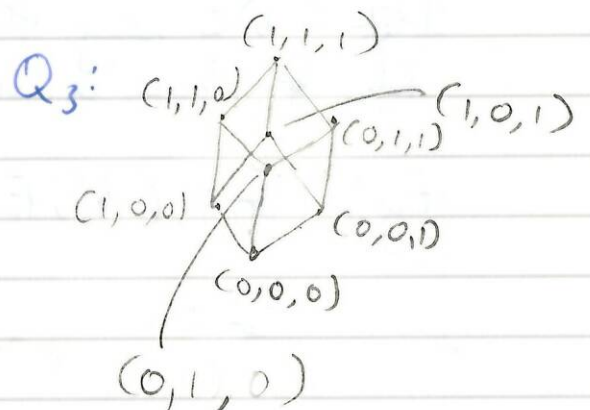 (1,1,1)
Q3:
(1,1,0)
(1,0,1)
(0,1,1)
(1,0,0)
(0,0,1)
(0,0,0)
(0,1,0)